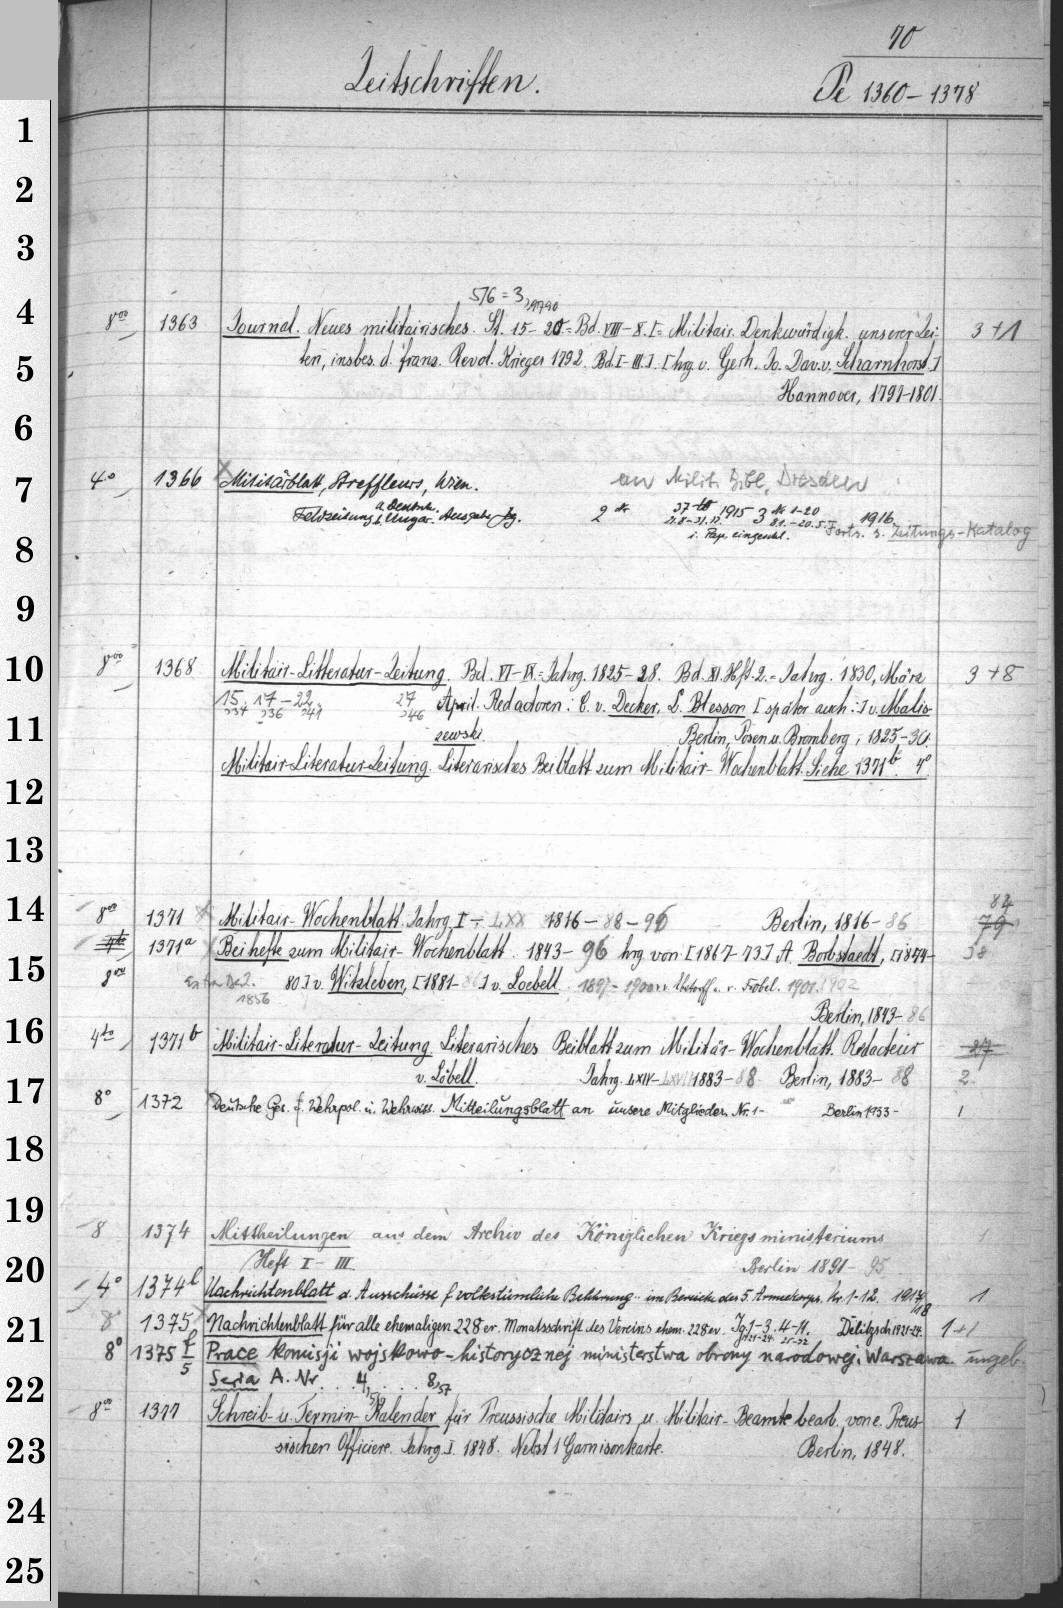 70
Zeitschriften.
Pe 1360-1378
1
2
3
4
5
6
7
8
9
10
11
12
13
14
15
16
17
18
19
20
21
22
23
24
25
5/6 = 3, 1790
8vo 1363 Journal. Neues militairisches. St. 15-20 = Bd. VIII-X. [= Militair. Denkwürdigk. unserer Zei- 3+1
ten, insbes. d. franz. Revol. Krieges 1792. Bd. I-III.]. [hrg. v. Gerh. Jo. Dav. v. Scharnhorst.]
Hannover, 1797-1801.
4° 1366 Militärblatt, Streffleurs, Wien. an Milit. Bibl. Dresden
Feldzeitung a. Deutsche b. Ungar. Ausgabe Jg. 2 1915 3 № 1-20 1916
i. Pap. eingeschl. Forts. s. Zeitungs-Katalog
8vo 1368 Militair-Litteratur-Zeitung. Bd. VI-IX = Jahrg. 1825-28. Bd. XI. Hft. 2. = Jahrg. 1830, März 3+8
15. 17-22. 27 April. Redactoren: C. v. Decker, L. Blesson [später auch:] v. Malis-
234 236 241 246
zewski. Berlin, Posen u. Bromberg, 1825-30.
Militair-Literatur-Zeitung. Literarisches Beiblatt zum Militair-Wochenblatt. Siehe 1371b. 4°
82
8vo 1371 Militair-Wochenblatt. Jahrg. I - LXX 1816-88-96 Berlin, 1816-86 79
4to 1371a Beihefte zum Militair-Wochenblatt. 1843-96 hrg. von [1867-73] A. Borbstaedt, [1874- 38
8vo 80] v. Witzleben, [1881-86] v. Loebell 1897-1900 v. Frobel. 1901. 1902
1856
Berlin, 1843-86
4to 1371b Militair-Literatur-Zeitung. Literarisches Beiblatt zum Militär-Wochenblatt. Redacteur 27
v. Löbell. Jahrg. LXIV-LXVII 1883-88 Berlin, 1883-88 2
8° 1372 Deutsche Ges. f. Wehrpol. u. Wehrwiss. Mitteilungsblatt an unsere Mitglieder. Nr. 1- Berlin 1933- 1
8 1374 Mittheilungen aus dem Archiv des Königlichen Kriegsministeriums 1
Heft I-III. Berlin 1891-95
4° 1374b Nachrichtenblatt d. Ausschüsse f. volkstümliche Belehrung im Bereiche des 5. Armeekorps. Nr. 1-12. 1917/18 1
8 1375 Nachrichtenblatt für alle ehemaligen 228er. Monatsschrift des Vereins ehem. 228er. Jg. 1-3. 4-11. Delitzsch 1921-24. 1+1
8° 1375 f/5 Prace komisji wojskowo-historycznej ministerstwa obrony narodowej. Warszawa. ungeb.
Seria A. Nr. ... 4, ... 8,57
8vo 1377 Schreib- u. Termin-Kalender für Preussische Militairs u. Militair-Beamte bearb. von e. Preus- 1
sischen Officiere. Jahrg. I. 1848. Nebst 1 Garnisonkarte. Berlin, 1848.